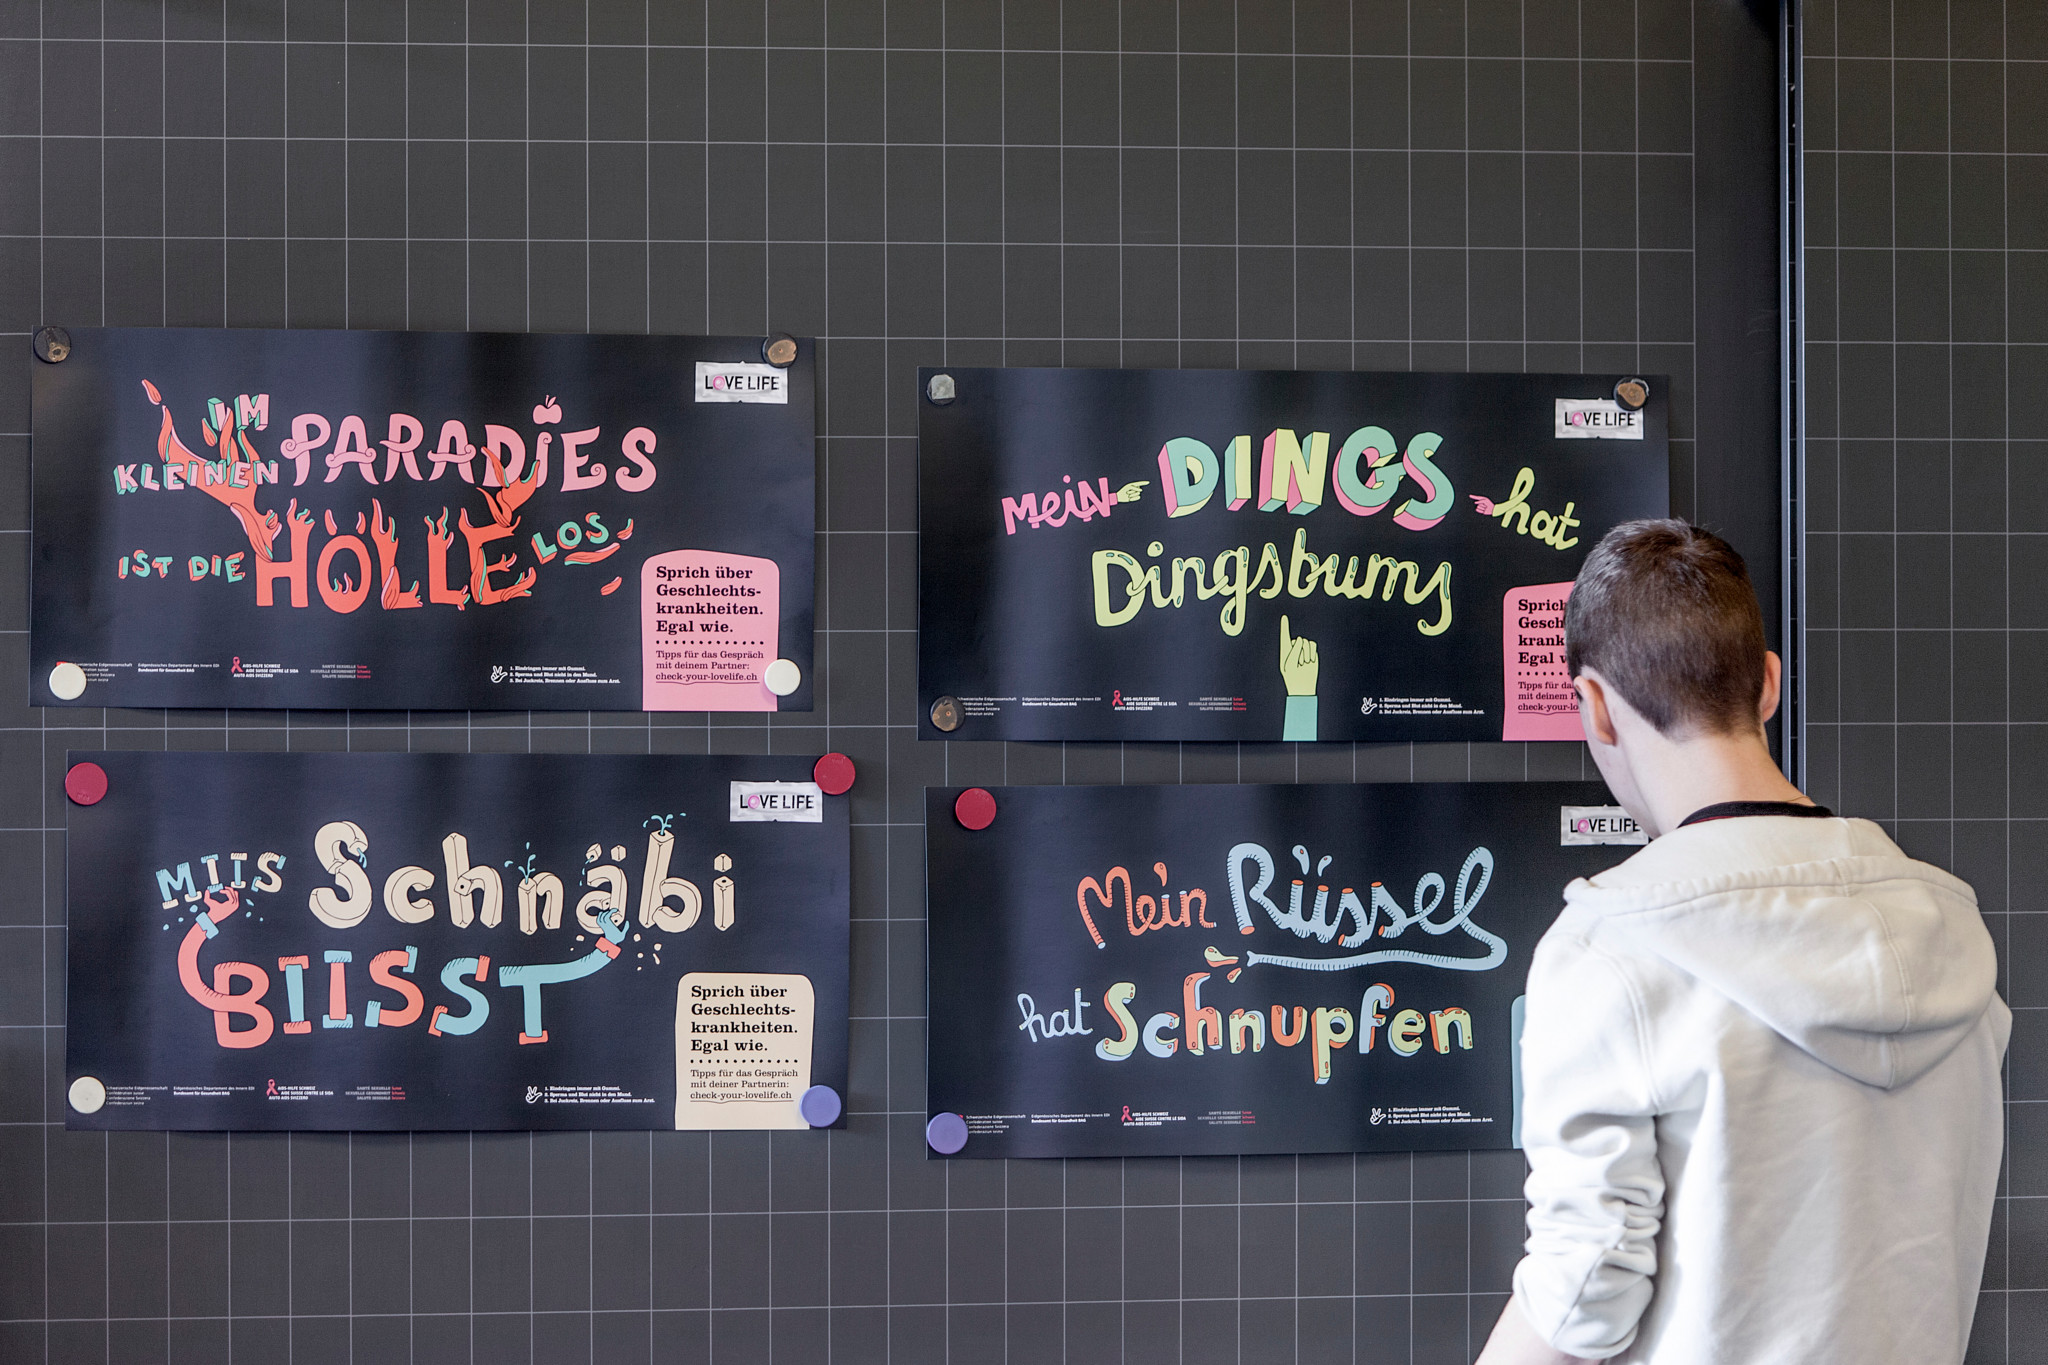 LOVE LIFE
IM
KLEINEN PARADIES
IST DIE HÖLLE LOS
Sprich über
Geschlechts-
krankheiten.
Egal wie.
Tipps für das Gespräch
mit deinem Partner:
check-your-lovelife.ch
Eidgenössisches Departement des Innern EDI
Bundesamt für Gesundheit BAG
AIDS-HILFE SCHWEIZ
AIDE SUISSE CONTRE LE SIDA
AIUTO AIDS SVIZZERO
SANTÉ SEXUELLE Suisse
SEXUELLE GESUNDHEIT Schweiz
SALUTE SESSUALE Svizzera
1. Eindringen immer mit Gummi.
2. Sperma und Blut nicht in den Mund.
3. Bei Juckreiz, Brennen oder Ausfluss zum Arzt.
LOVE LIFE
MEIN DINGS hat
Dingsbums
Sprich
Gesch
krank
Egal w
Tipps für da
mit deinem P
check-your-lo
Eidgenössisches Departement des Innern EDI
Bundesamt für Gesundheit BAG
AIDS-HILFE SCHWEIZ
AIDE SUISSE CONTRE LE SIDA
AIUTO AIDS SVIZZERO
SANTÉ SEXUELLE Suisse
SEXUELLE GESUNDHEIT Schweiz
SALUTE SESSUALE Svizzera
1. Eindringen immer mit Gummi.
2. Sperma und Blut nicht in den Mund.
3. Bei Juckreiz, Brennen oder Ausfluss zum Arzt.
LOVE LIFE
MIIS Schnäbi
BIISST
Sprich über
Geschlechts-
krankheiten.
Egal wie.
Tipps für das Gespräch
mit deiner Partnerin:
check-your-lovelife.ch
Schweizerische Eidgenossenschaft
Confédération suisse
Confederazione Svizzera
Confederaziun svizra
Eidgenössisches Departement des Innern EDI
Bundesamt für Gesundheit BAG
AIDS-HILFE SCHWEIZ
AIDE SUISSE CONTRE LE SIDA
AIUTO AIDS SVIZZERO
SANTÉ SEXUELLE Suisse
SEXUELLE GESUNDHEIT Schweiz
SALUTE SESSUALE Svizzera
1. Eindringen immer mit Gummi.
2. Sperma und Blut nicht in den Mund.
3. Bei Juckreiz, Brennen oder Ausfluss zum Arzt.
LOVE LIFE
Mein Rüssel
hat Schnupfen
Schweizerische Eidgenossenschaft
Eidgenössisches Departement des Innern EDI
Bundesamt für Gesundheit BAG
AIDS-HILFE SCHWEIZ
AIDE SUISSE CONTRE LE SIDA
AIUTO AIDS SVIZZERO
SANTÉ SEXUELLE Suisse
SEXUELLE GESUNDHEIT Schweiz
SALUTE SESSUALE Svizzera
1. Eindringen immer mit Gummi.
2. Sperma und Blut nicht in den Mund.
3. Bei Juckreiz, Brennen oder Ausfluss zum Arzt.